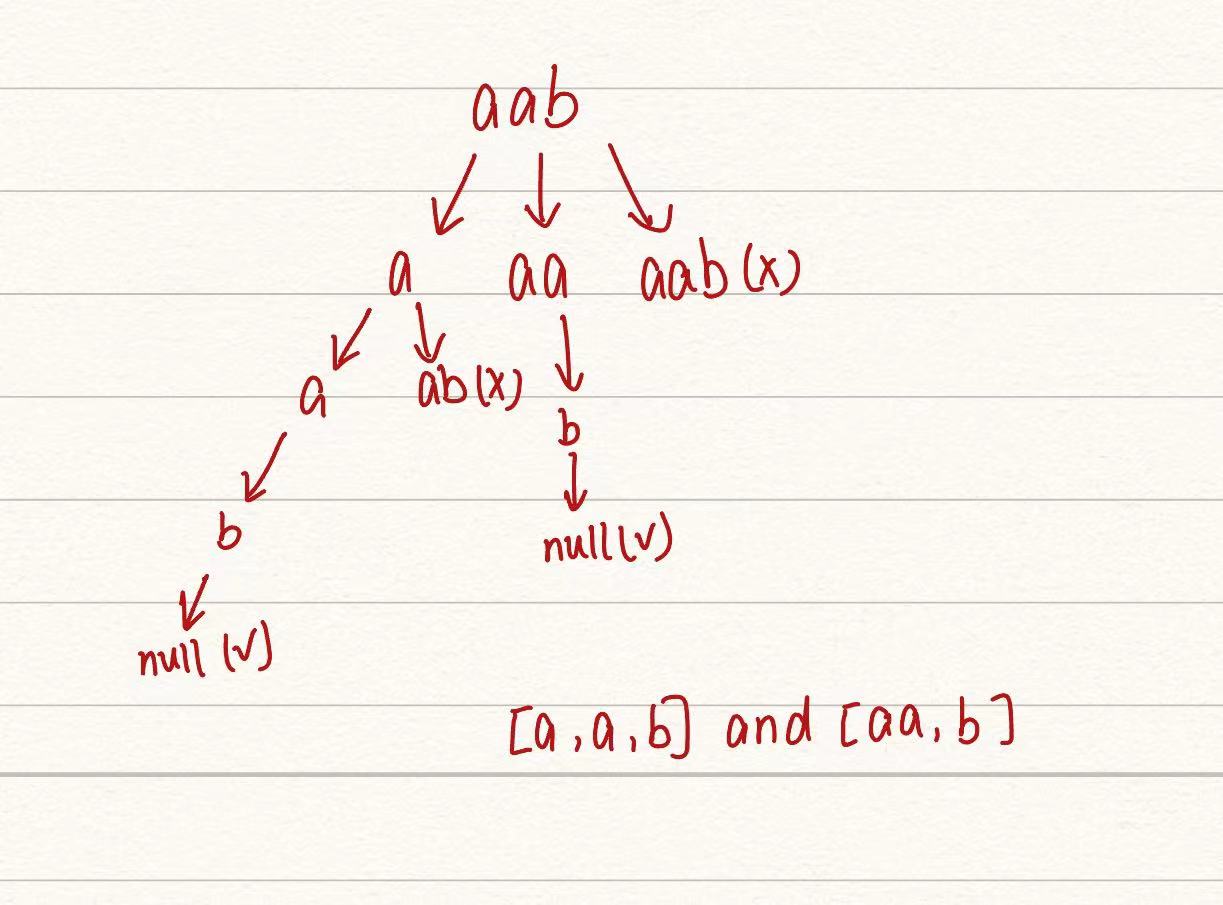 aab
a aa aab (x)
a ab (x) b
b null (v)
null (v)
[a, a, b] and [aa, b]